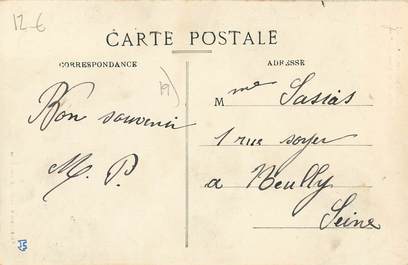 12-6
CARTE POSTALE
CORRESPONDANCE
ADRESSE
19)
Bon souvenir
M. P.
Mme Sasias
1 rue soyer
a Neully
Seine